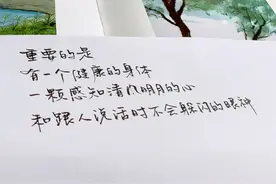 重要的是
有一个健康的身体
一颗感知清风明月的心
和跟人说话时不会躲闪的眼神